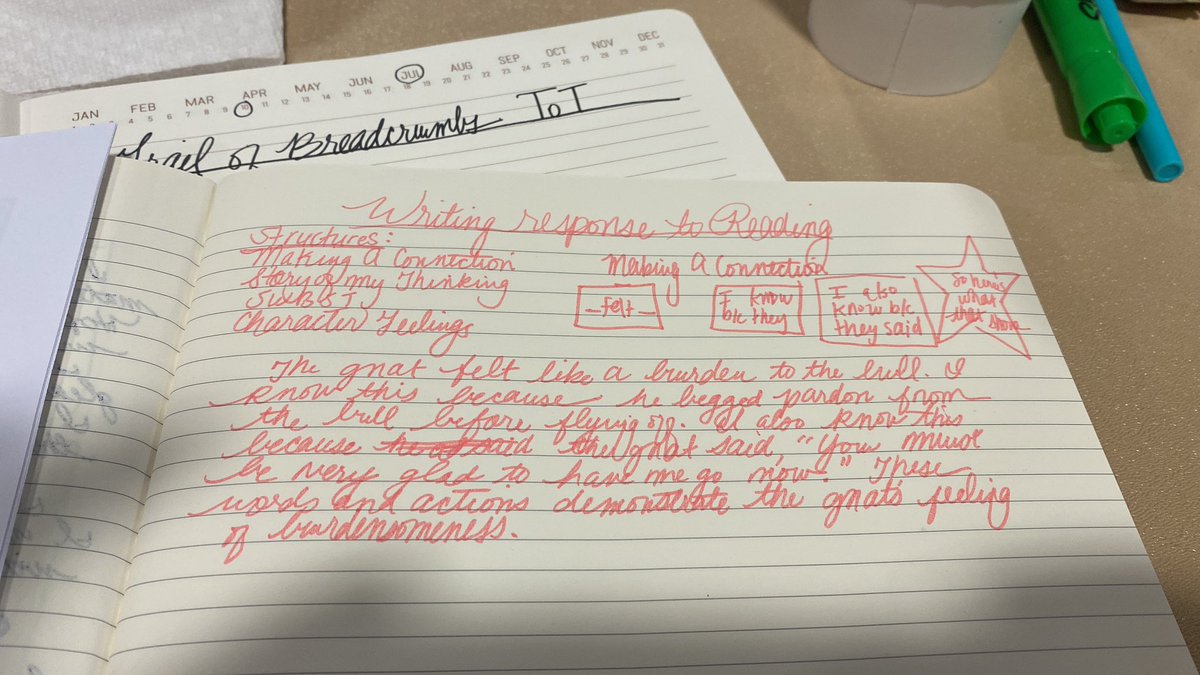 JAN FEB MAR APR MAY JUN JUL AUG SEP OCT NOV DEC
4 5 6 7 8 9 10 11 12 13 14 15 16 17 18 19 20 21 22 23 24 25 26 27 28 29 30 31
Trail of Breadcrumbs ToT
Writing response to Reading
Structures:
Making A Connection
Story of my Thinking
Character Feelings
Making A Connection
_felt_
I know
b/c they
I also
know b/c
they said
So here's
what
that show
The gnat felt like a burden to the bull. I
know this because he begged pardon from
the bull before flying off. I also know this
because said the gnat said, "You must
be very glad to have me go now." These
words and actions demonstrate the gnat's feeling
of burdensomeness.